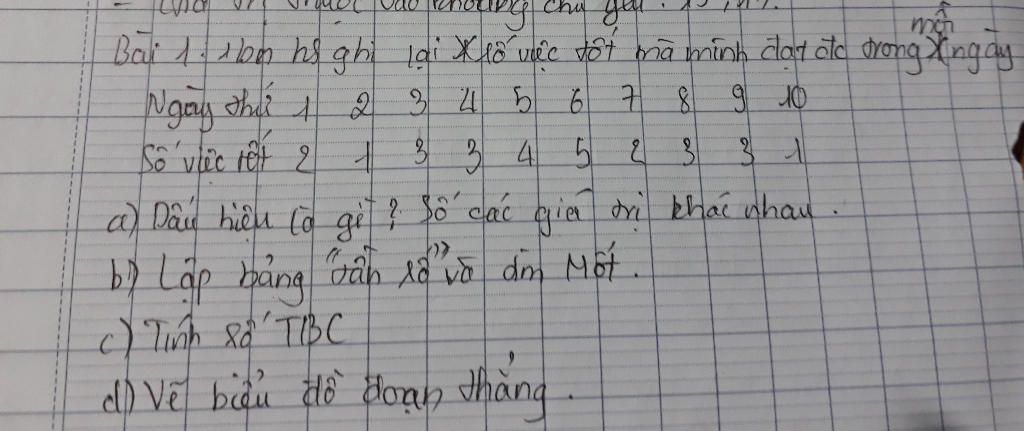 Bài 1: 1 bạn hs ghi lại số việc tốt mà mình đạt đc trong mỗi ngày
Ngày thứ 1 2 3 4 5 6 7 8 9 10
Số việc tốt 2 1 3 3 4 5 2 3 3 1
a) Dấu hiệu là gì? Số các giá trị khác nhau.
b) Lập bảng "tần số" và tìm Mốt.
c) Tính số TBC
d) Vẽ biểu đồ đoạn thẳng.